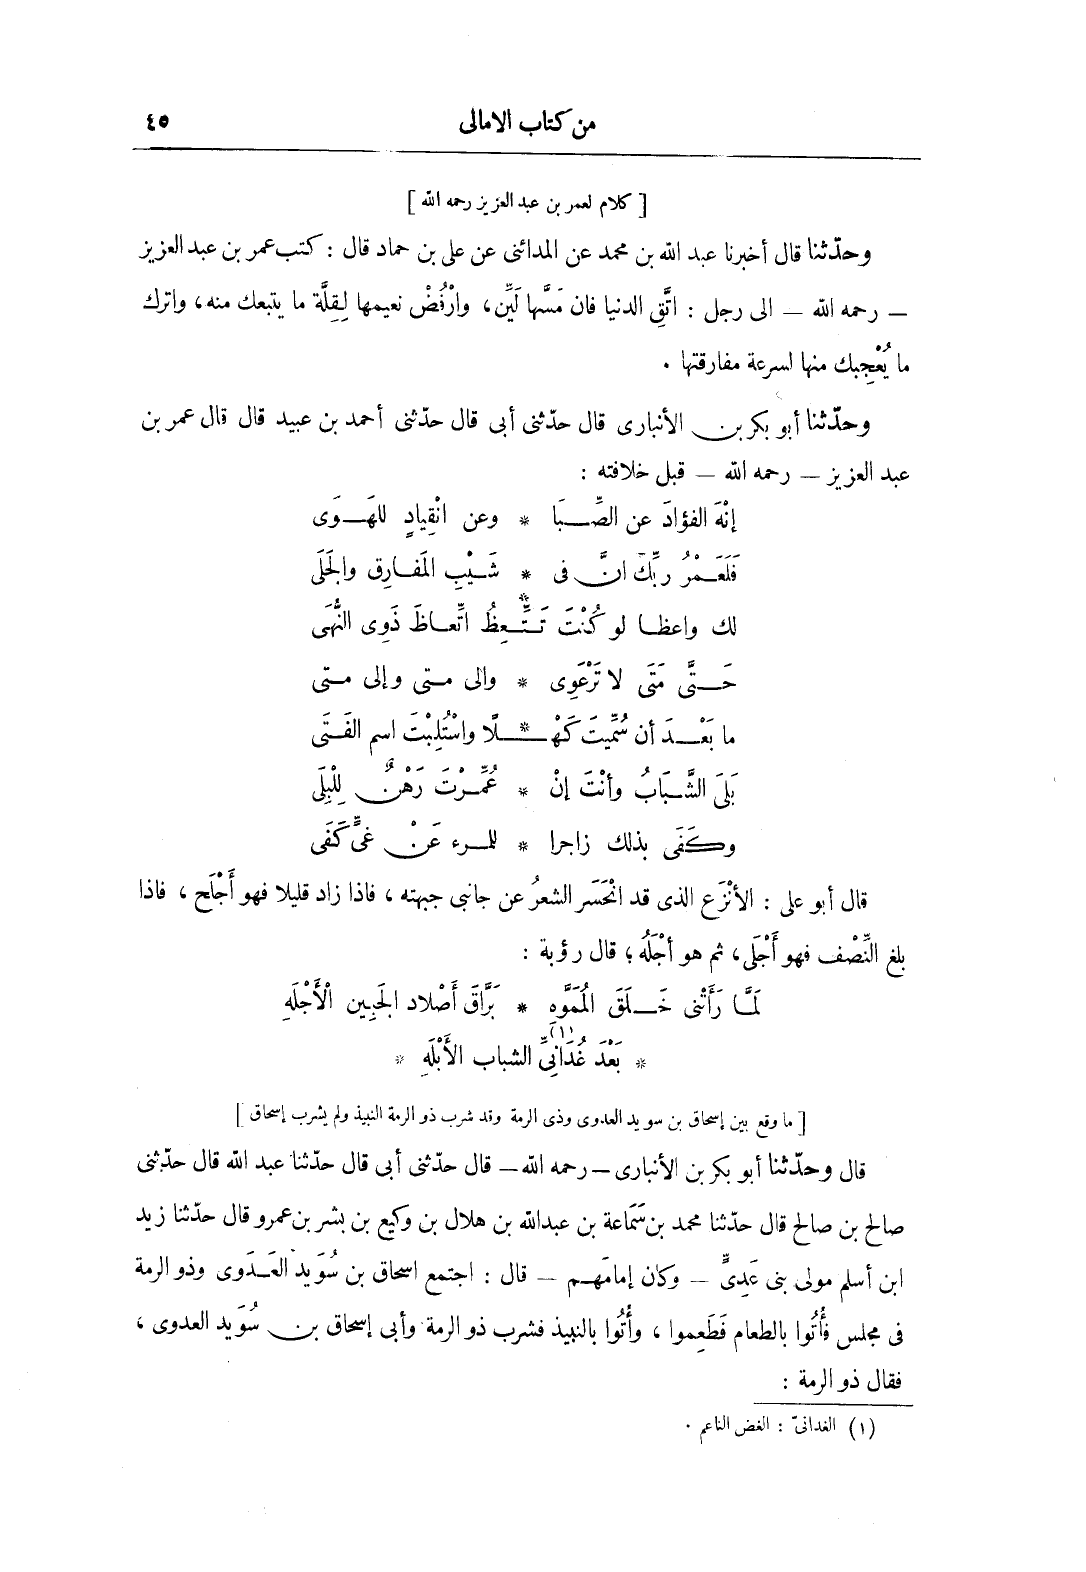 من كتاب الامالى ٤٥
[ كلام لعمر بن عبد العزيز رحمه الله ]
وحدّثنا قال أخبرنا عبد الله بن محمد عن المدائنى عن على بن حماد قال : كتب عمر بن عبد العزيز
— رحمه الله — الى رجل : اتَّقِ الدنيا فان مَسَّها لَيِّن، وارْفُضْ نعيمها لِقِلَّة ما يتبعك منه، واترك
ما يُعْجِبك منها لسرعة مفارقتها .
وحدّثنا أبو بكر بن الأنبارى قال حدّثنى أبى قال حدّثنى أحمد بن عبيد قال قال عمر بن
عبد العزيز — رحمه الله — قبل خلافته :
إنْهَ الفؤادَ عن الصِّبَا * وعن انْقِيادٍ للهَوَى
فَلَعَمْرُ رَبِّكَ انَّ فى * شَيْبِ المَفَارِق والجَلَى
لك واعظا لو كُنْتَ تَتَّعِظُ * اتِّعاظَ ذَوِى النُّهَى
حَتَّى مَتَى لا تَرْعَوِى * والى متى وإلى متى
ما بَعْدَ أن سُمِّيتَ كَهْلًا * واسْتُلِبْتَ اسم الفَتَى
بَلِىَ الشَّبَابُ وأنْتَ إنْ * عُمِّرْتَ رَهْنٌ لِلْبِلَى
وكَفَى بذلك زاجرا * للمرء عَنْ غَىٍّ كَفَى
قال أبو على : الأنْزَع الذى قد انْحَسَر الشعرُ عن جانبى جبهته ، فاذا زاد قليلا فهو أَجْلَح ، فاذا
بلغ النِّصْف فهو أَجْلَى، ثم هو أجْلَهُ ؛ قال رؤبة :
لَمَّا رَأَتْنى خَلَقَ المُمَوَّهِ * بَرَّاقَ أَصْلاد الجَبِين الأَجْلَهِ
* بَعْدَ غُدَانِىِّ (١) الشباب الأَبْلَهِ *
[ ما وقع بين إسحاق بن سويد العدوى وذى الرمة وقد شرب ذو الرمة النبيذ ولم يشرب إسحاق ]
قال وحدّثنا أبو بكر بن الأنبارى — رحمه الله — قال حدّثنى أبى قال حدّثنا عبد الله قال حدّثنى
صالح بن صالح قال حدّثنا محمد بن سَمَاعة بن عبدالله بن هلال بن وكيع بن بشر بن عمرو قال حدّثنا زيد
ابن أسلم مولى بنى عَدِىٍّ — وكان إمامَهم — قال : اجتمع اسحاق بن سُوَيد العَدَوى وذو الرمة
فى مجلس فأُتُوا بالطعام فَطَعِموا ، وأُتُوا بالنبيذ فشرب ذو الرمة وأبى إسحاق بن سُوَيد العدوى ،
فقال ذو الرمة :
(١) الغدانىّ : الغض الناعم .